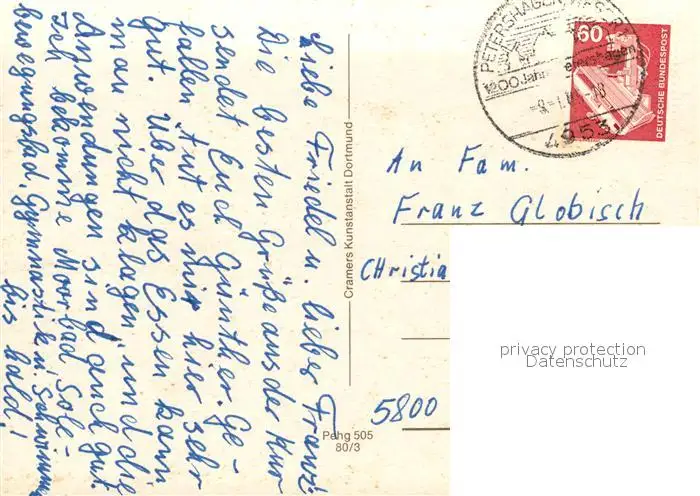 Liebe Friedel u. lieber Franz!
Die besten Grüße aus der Kur
sendet Euch Günther. Ge-
fallen tut es mir hier sehr
gut. Über das Essen kann
man nicht klagen, und die
Anwendungen sind auch gut.
Ich bekomme Moorbad, Sole-
bewegungsbad, Gymnastik u. Schwimm
bis bald!
Cramers Kunstanstalt Dortmund
Pehg 505
80/3
PETERSHAGEN, WESER
1200 Jahre Petershagen
4953
60
DEUTSCHE BUNDESPOST
An Fam.
Franz Globisch
Christia
5800
privacy protection
Datenschutz